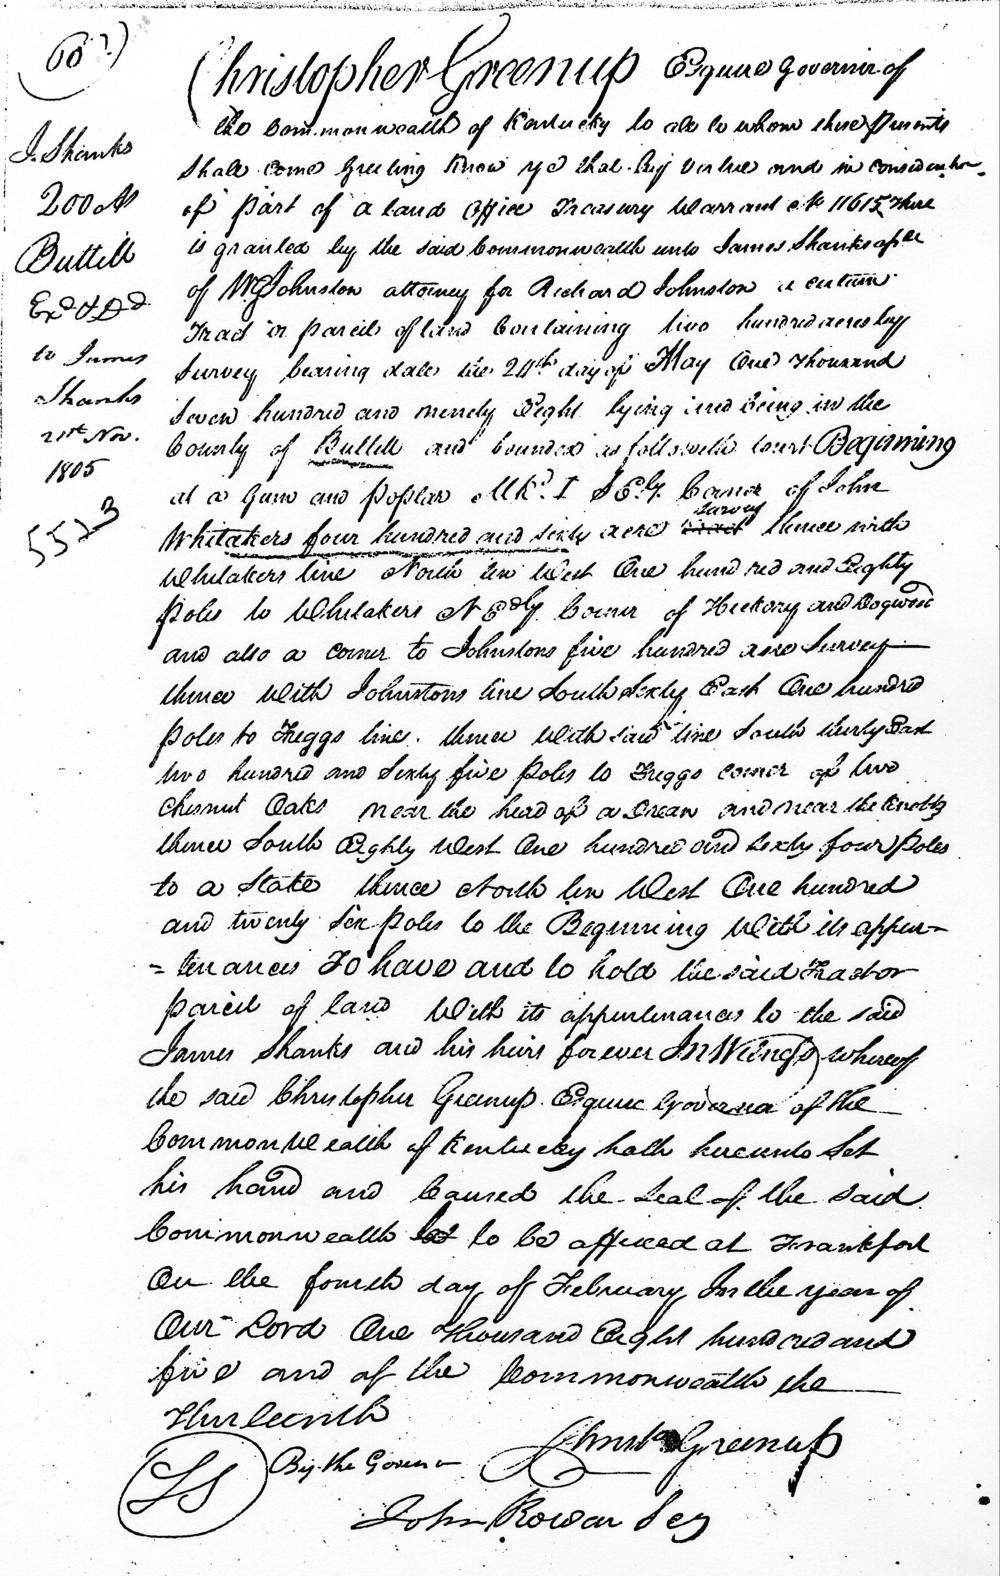 (60?)
J. Shanks
200 As
Bullitt
Exd & Dd
to James
Shanks
21st Nov.
1805
5513
Christopher Greenup Esquire Governor of
the Commonwealth of Kentucky to all to whom these presents
shall come Greeting Know ye that by virtue and in consideration
of part of a land office Treasury Warrant No 11615 There
is granted by the said Commonwealth unto James Shanks asee
of WG Johnston attorney for Richard Johnston a certain
Tract or parcel of land Containing two hundred acres by
Survey bearing date the 24th day of May One thousand
Seven hundred and ninety Eight lying and being in the
County of Bullitt and bounded as followeth towit Begining
at a Gum and poplar Mkd. I S Ely. Corner of John
Whitakers four hundred and sixty acre survey thence with
Whitakers line North ten West One hundred and Eighty
Poles to Whitakers N Edly. Corner of Hickory and Dogwood
and also a corner to Johnstons five hundred acre Survey
thence with Johnstons line South Sixty East One hundred
Poles to Freggs line. thence with said line South thirty East
two hundred and sixty five Poles to Freggs corner of two
chesnut Oaks near the head of a Drean and near the Knobs
thence South Eighty West One hundred and sixty four Poles
to a Stake thence North ten West One hundred
and twenty six Poles to the Beginning With its appur-
=tenances To have and to hold the said Tract or
parcel of land With its appurtenances to the said
James Shanks and his heirs forever In Witness whereof
the said Christopher Greenup Esquire Governor of the
Commonwealth of Kentucky hath hereunto Set
his hand and Caused the Seal of the said
Commonwealth to be affixed at Frankfort
On the fourth day of February In the year of
Our Lord One thousand Eight hundred and
five and of the Commonwealth the
Thirteenth
LS
By the Governor
Christo Greenup
John Rowan Secy